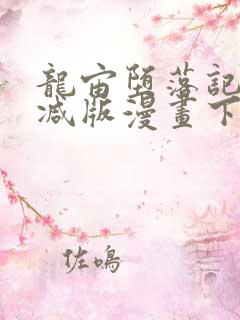 龍宙堕落記
减版漫畫下
佐鳴